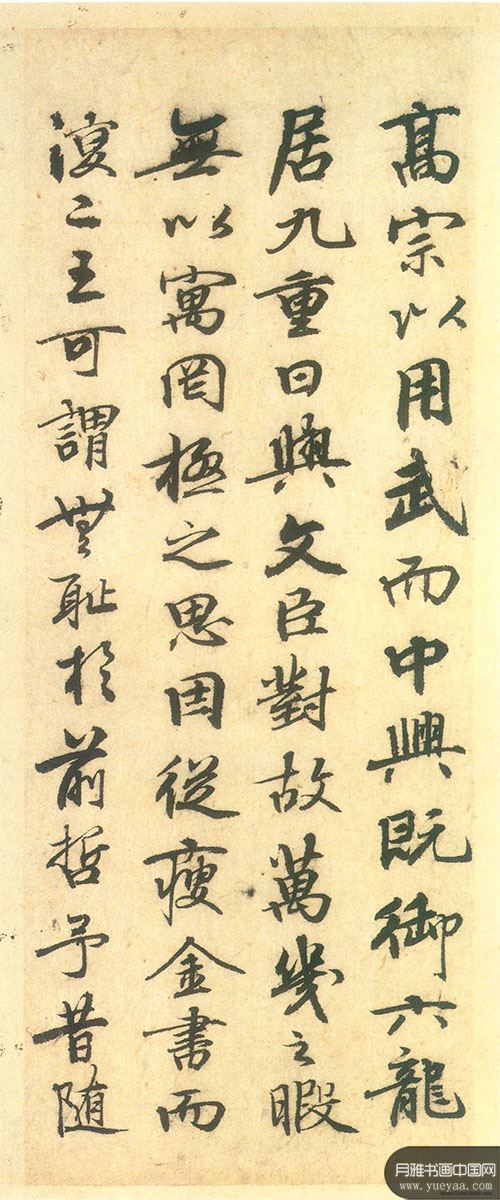 高宗以用武而中興既御六龍
居九重日與文臣對故萬幾之暇
無以寓罔極之思因從瘦金書而
復二王可謂無恥於前哲予昔隨
月雅书画中国网
www.yueyaa.com